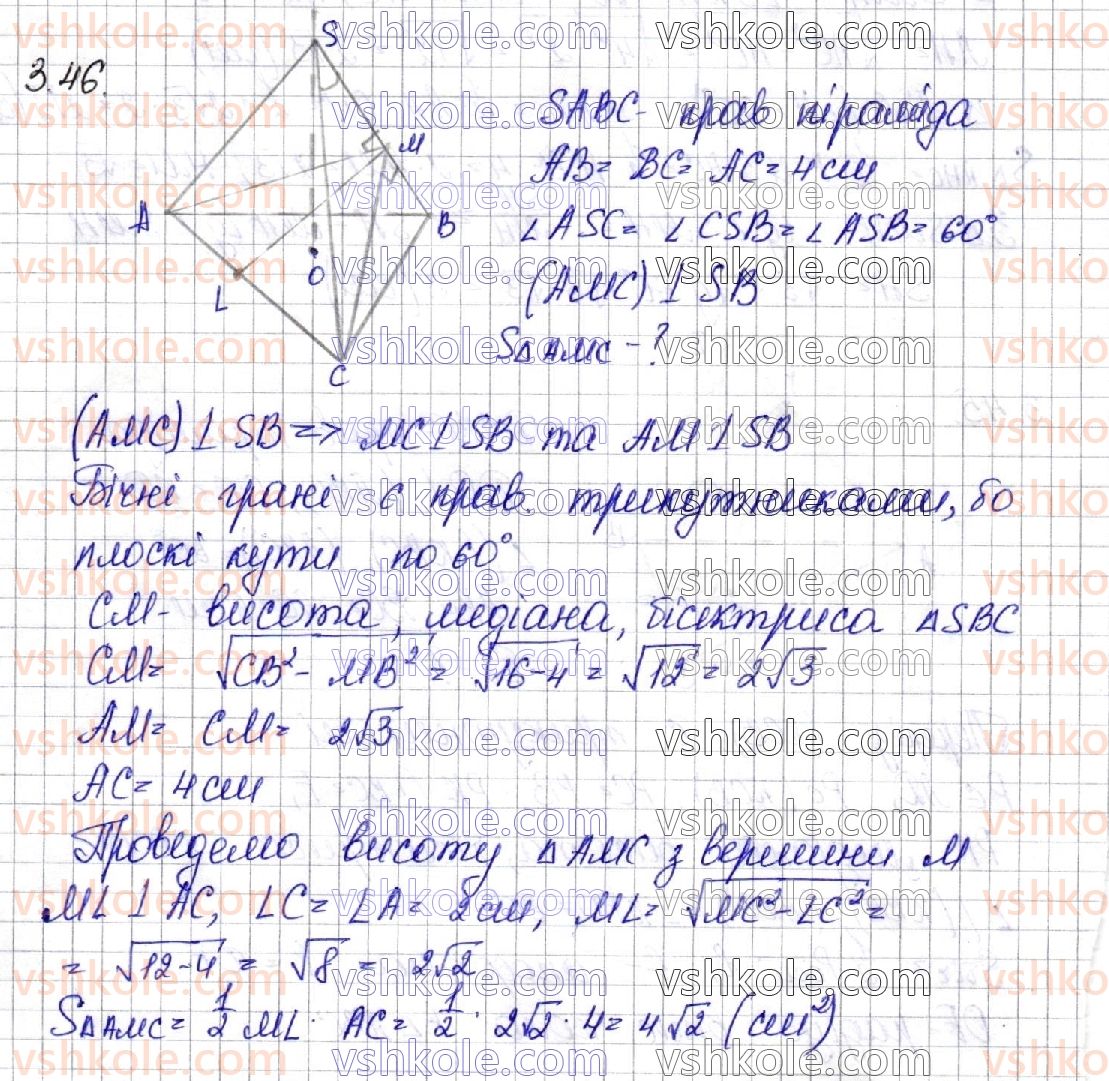 3.46.
S
M
A
B
O
L
C
SABC - прав піраміда
AB = BC = AC = 4 см
∠ASC = ∠CSB = ∠ASB = 60°
(AMC) ⊥ SB
S△AMC - ?
(AMC) ⊥ SB => MC ⊥ SB та AM ⊥ SB
Бічні грані є прав. трикутниками, бо
плоскі кути по 60°
CM - висота, медіана, бісектриса △SBC
CM = √(CB² - MB²) = √(16-4) = √12 = 2√3
AM = CM = 2√3
AC = 4 см
Проведемо висоту △AMC з вершини M
ML ⊥ AC, LC = LA = 2 см, ML = √(MC² - LC²) =
= √(12-4) = √8 = 2√2
S△AMC = 1/2 ML · AC = 1/2 · 2√2 · 4 = 4√2 (см²)
vshkole.com